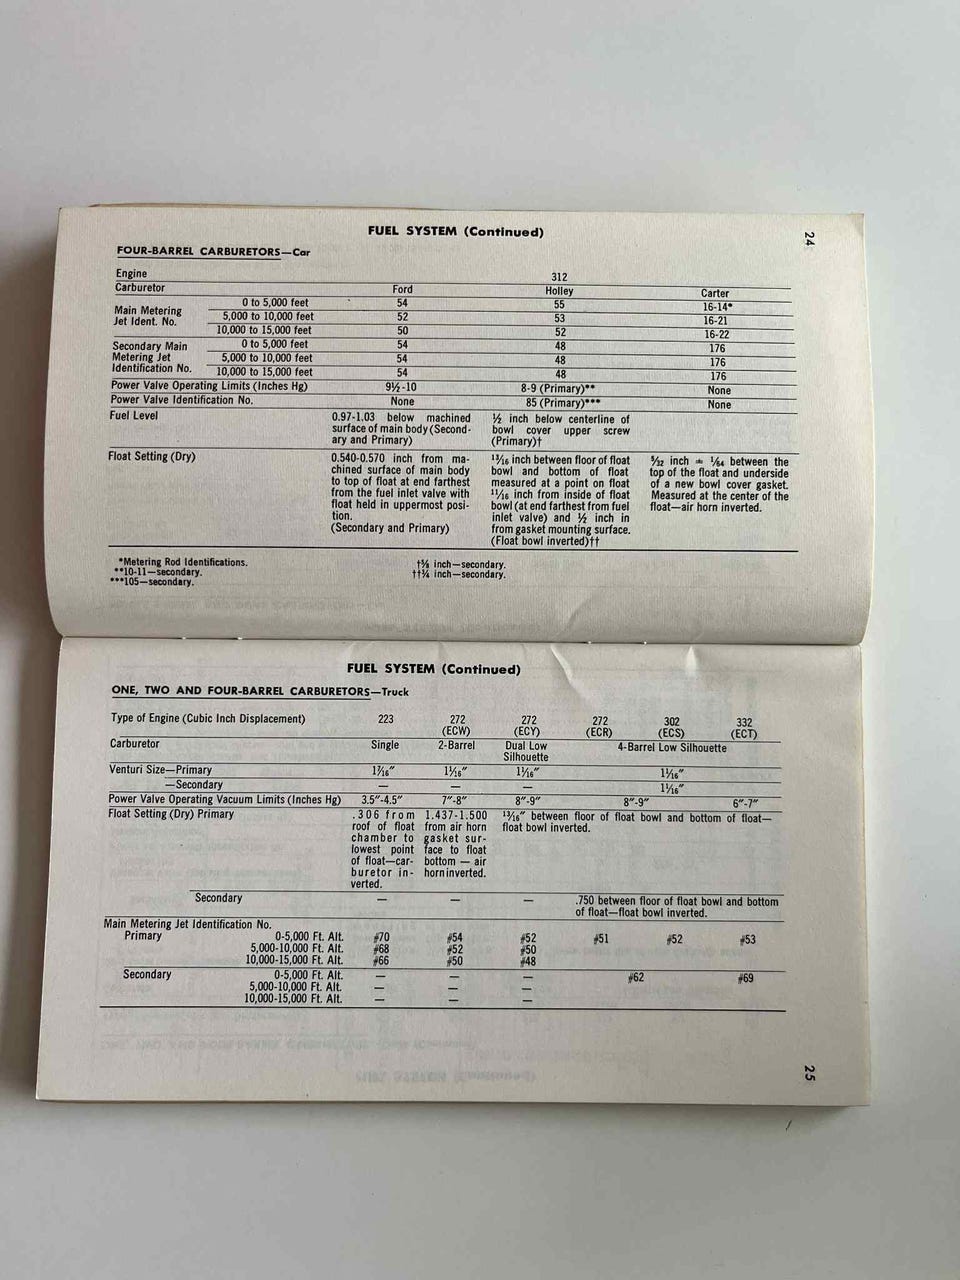 FUEL SYSTEM (Continued)
24
FOUR-BARREL CARBURETORS—Car
Engine 312
Carburetor Ford Holley Carter
Main Metering Jet Ident. No. 0 to 5,000 feet 54 55 16-14*
5,000 to 10,000 feet 52 53 16-21
10,000 to 15,000 feet 50 52 16-22
Secondary Main Metering Jet Identification No. 0 to 5,000 feet 54 48 176
5,000 to 10,000 feet 54 48 176
10,000 to 15,000 feet 54 48 176
Power Valve Operating Limits (Inches Hg) 9½-10 8-9 (Primary)** None
Power Valve Identification No. None 85 (Primary)*** None
Fuel Level
0.97-1.03 below machined
surface of main body (Second-
ary and Primary)
½ inch below centerline of
bowl cover upper screw
(Primary)†
Float Setting (Dry)
0.540-0.570 inch from ma-
chined surface of main body
to top of float at end farthest
from the fuel inlet valve with
float held in uppermost posi-
tion.
(Secondary and Primary)
13/16 inch between floor of float
bowl and bottom of float
measured at a point on float
11/16 inch from inside of float
bowl (at end farthest from fuel
inlet valve) and ½ inch in
from gasket mounting surface.
(Float bowl inverted)††
5/32 inch ± 1/64 between the
top of the float and underside
of a new bowl cover gasket.
Measured at the center of the
float—air horn inverted.
*Metering Rod Identifications.
**10-11—secondary.
***105—secondary.
†⅝ inch—secondary.
††¾ inch—secondary.
FUEL SYSTEM (Continued)
ONE, TWO AND FOUR-BARREL CARBURETORS—Truck
Type of Engine (Cubic Inch Displacement) 223 272 272 272 302 332
(ECW) (ECY) (ECR) (ECS) (ECT)
Carburetor Single 2-Barrel Dual Low Silhouette 4-Barrel Low Silhouette
Venturi Size—Primary 1 7/16″ 1 1/16″ 1 1/16″ 1 1/16″
—Secondary — — — 1 1/16″
Power Valve Operating Vacuum Limits (Inches Hg) 3.5″-4.5″ 7″-8″ 8″-9″ 8″-9″ 6″-7″
Float Setting (Dry) Primary
.306 from
roof of float
chamber to
lowest point
of float—car-
buretor in-
verted.
1.437-1.500
from air horn
gasket sur-
face to float
bottom — air
horn inverted.
13/16″ between floor of float bowl and bottom of float—
float bowl inverted.
Secondary — — — .750 between floor of float bowl and bottom
of float—float bowl inverted.
Main Metering Jet Identification No.
Primary 0-5,000 Ft. Alt. #70 #54 #52 #51 #52 #53
5,000-10,000 Ft. Alt. #68 #52 #50
10,000-15,000 Ft. Alt. #66 #50 #48
Secondary 0-5,000 Ft. Alt. — — — #62 #69
5,000-10,000 Ft. Alt. — — —
10,000-15,000 Ft. Alt. — — —
25